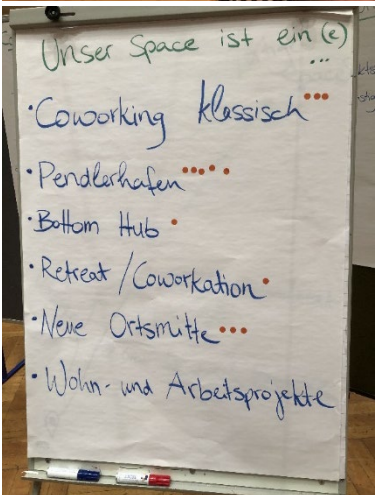 Unser Space ist ein(e)
...
• Coworking klassisch
• Pendlerhafen
• Bottom Hub
• Retreat / Coworkation
• Neue Ortsmitte
• Wohn- und Arbeitsprojekte